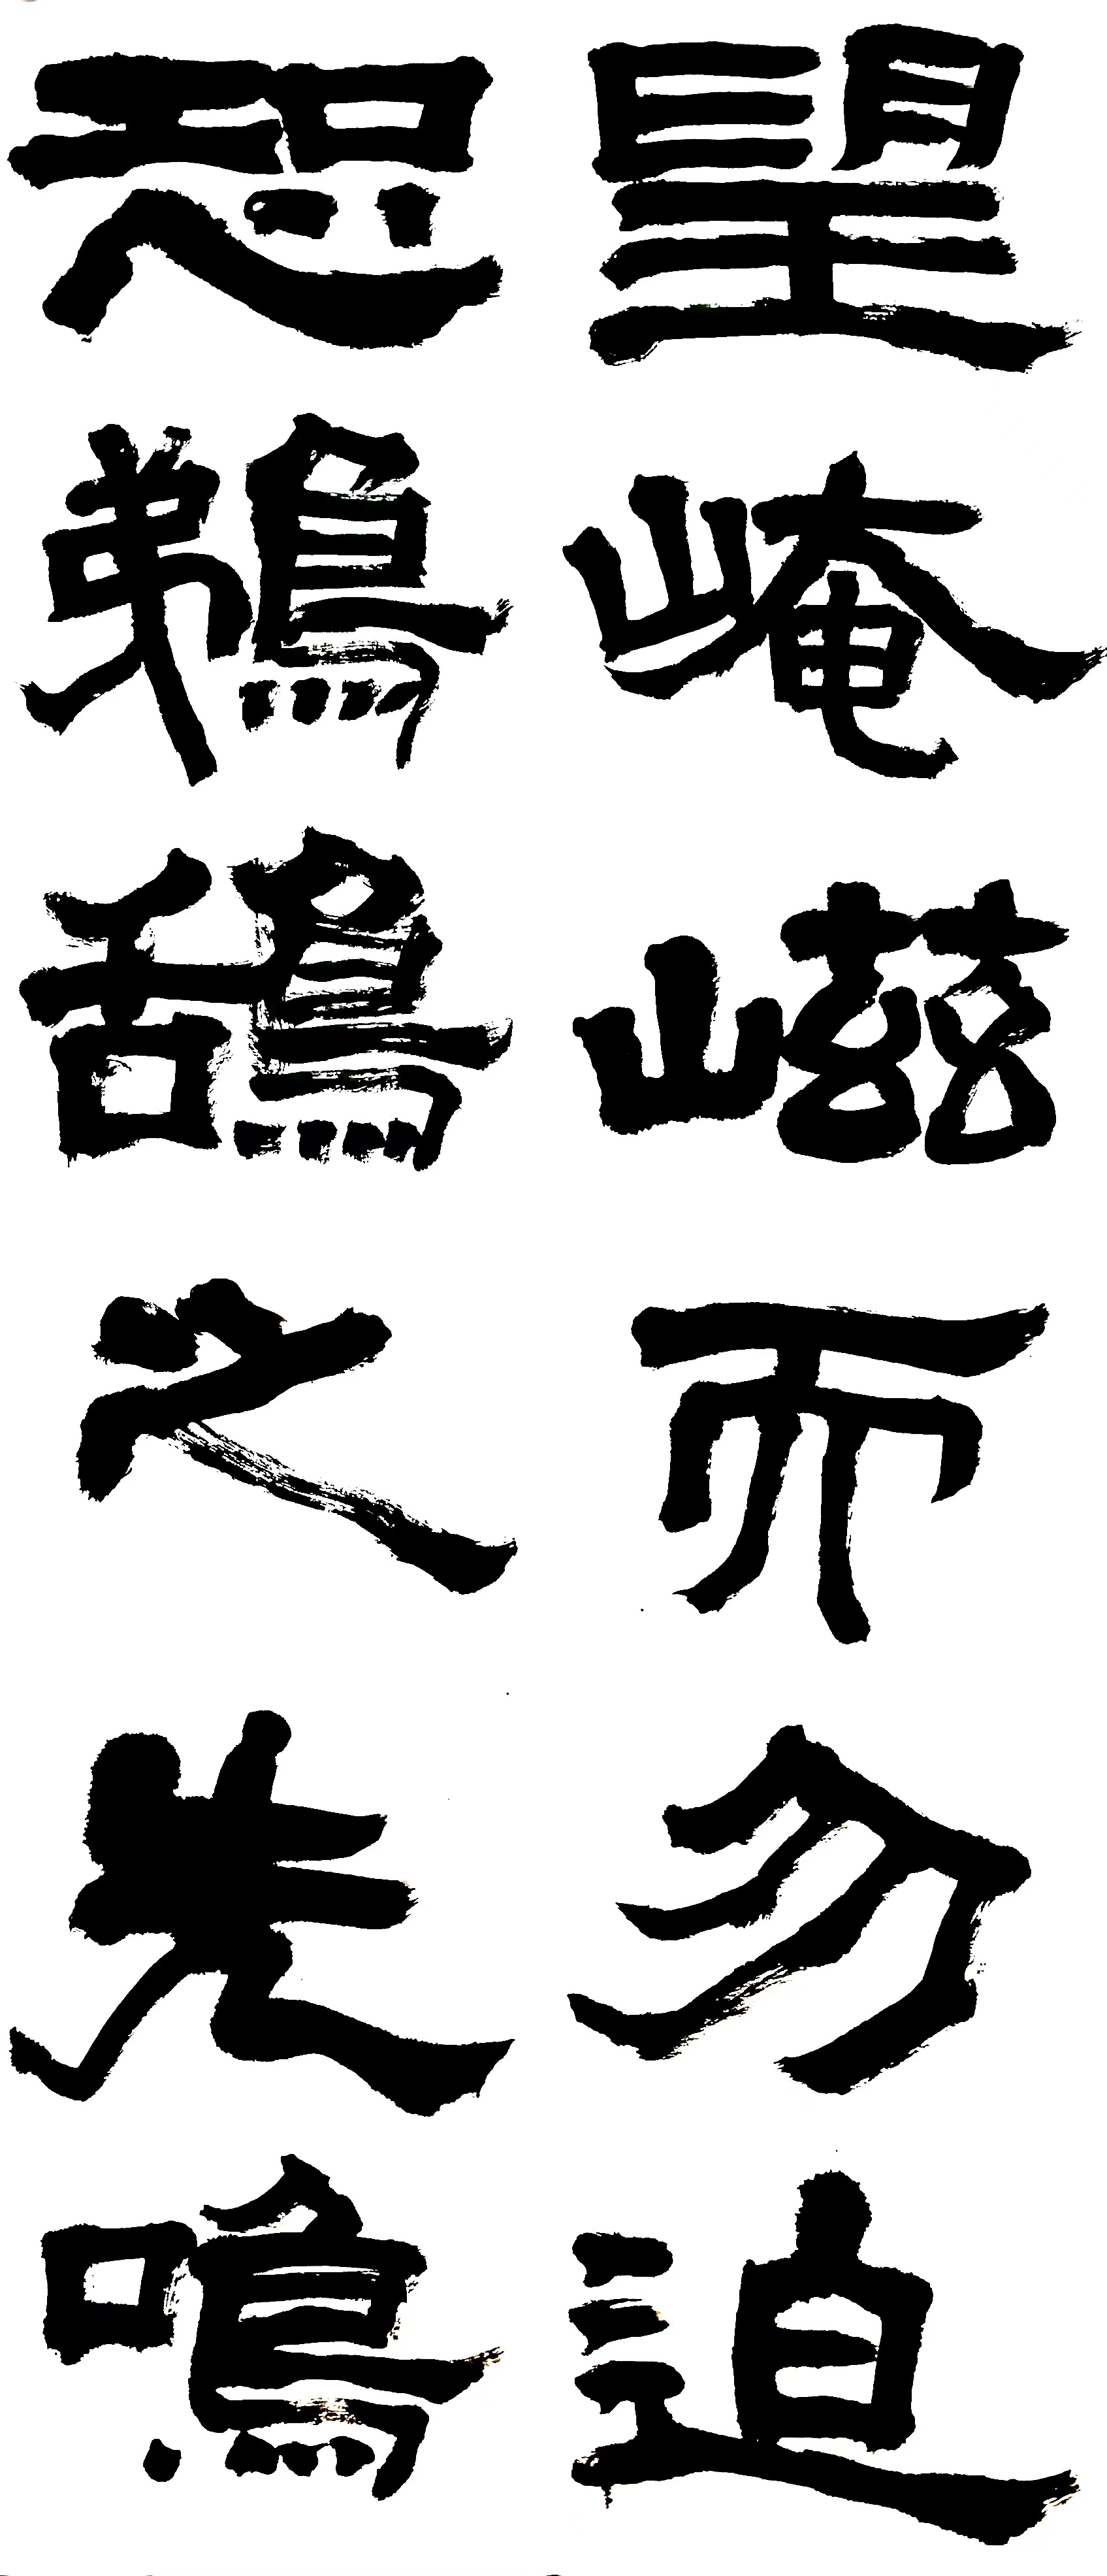 望崦嵫而勿迫
恐鵜鴰之先鳴